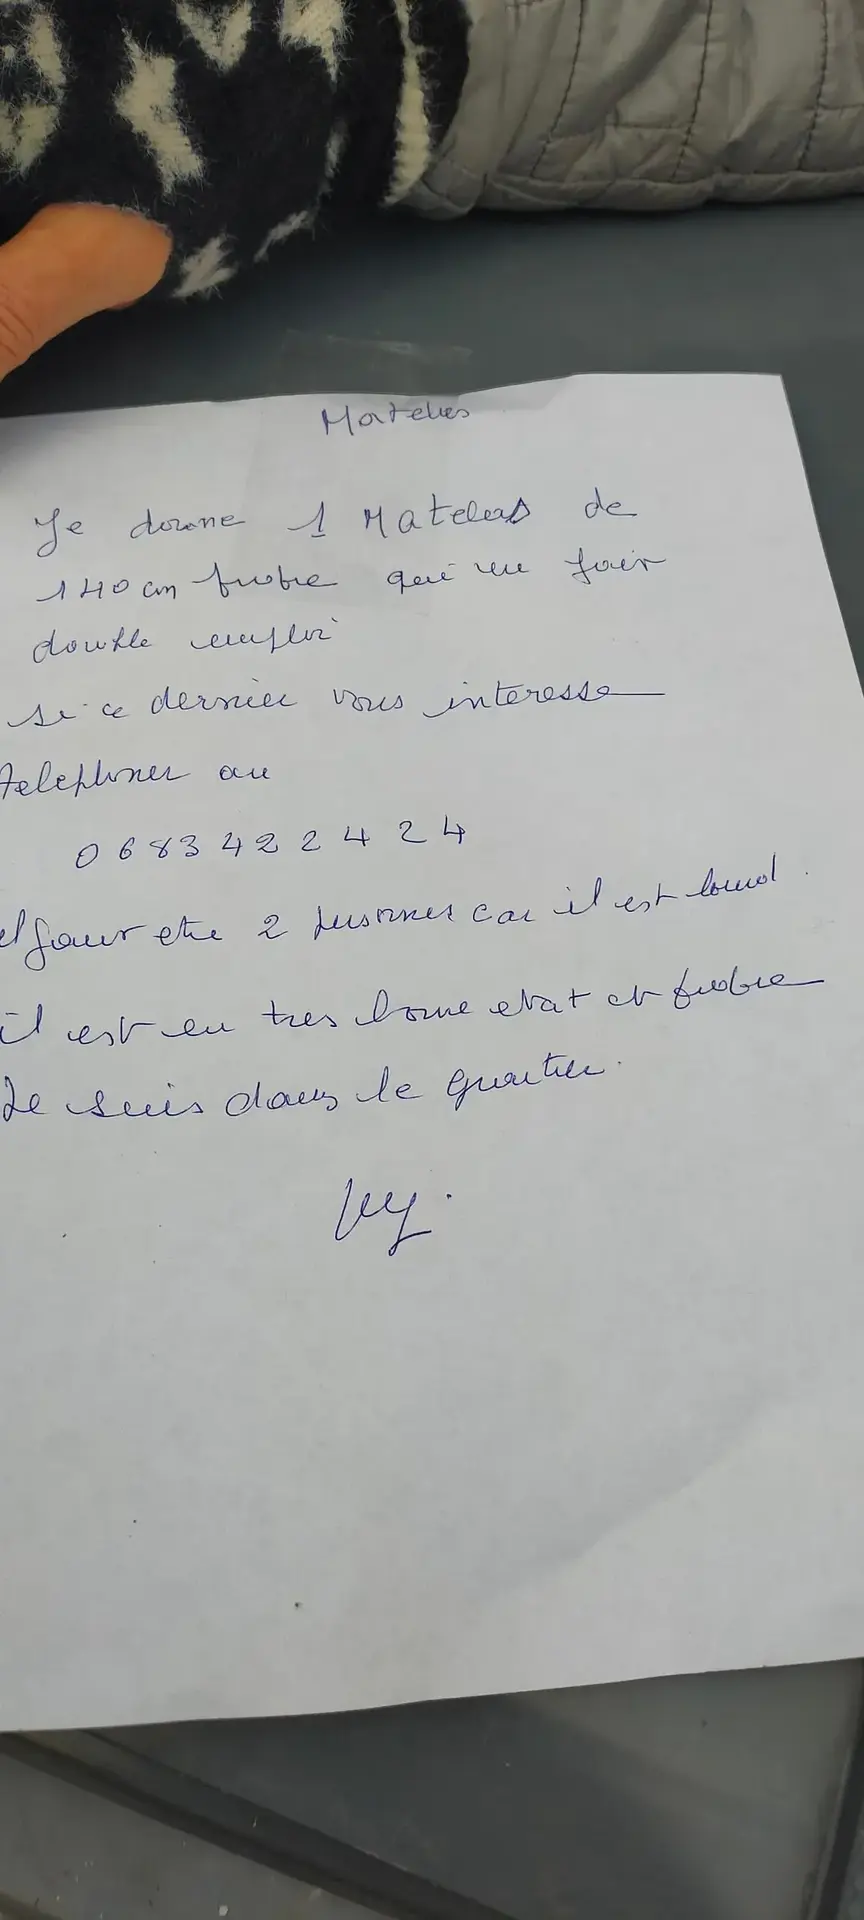 Matelas
Je donne 1 Matelas de
140 cm probre qui me fair
double emploi
si ce dernier vous interesse
telephoner au
0683422424
il faur etre 2 personnes car il est lourd.
il est en tres bonne etat et probre
Je suis dans le quartier.